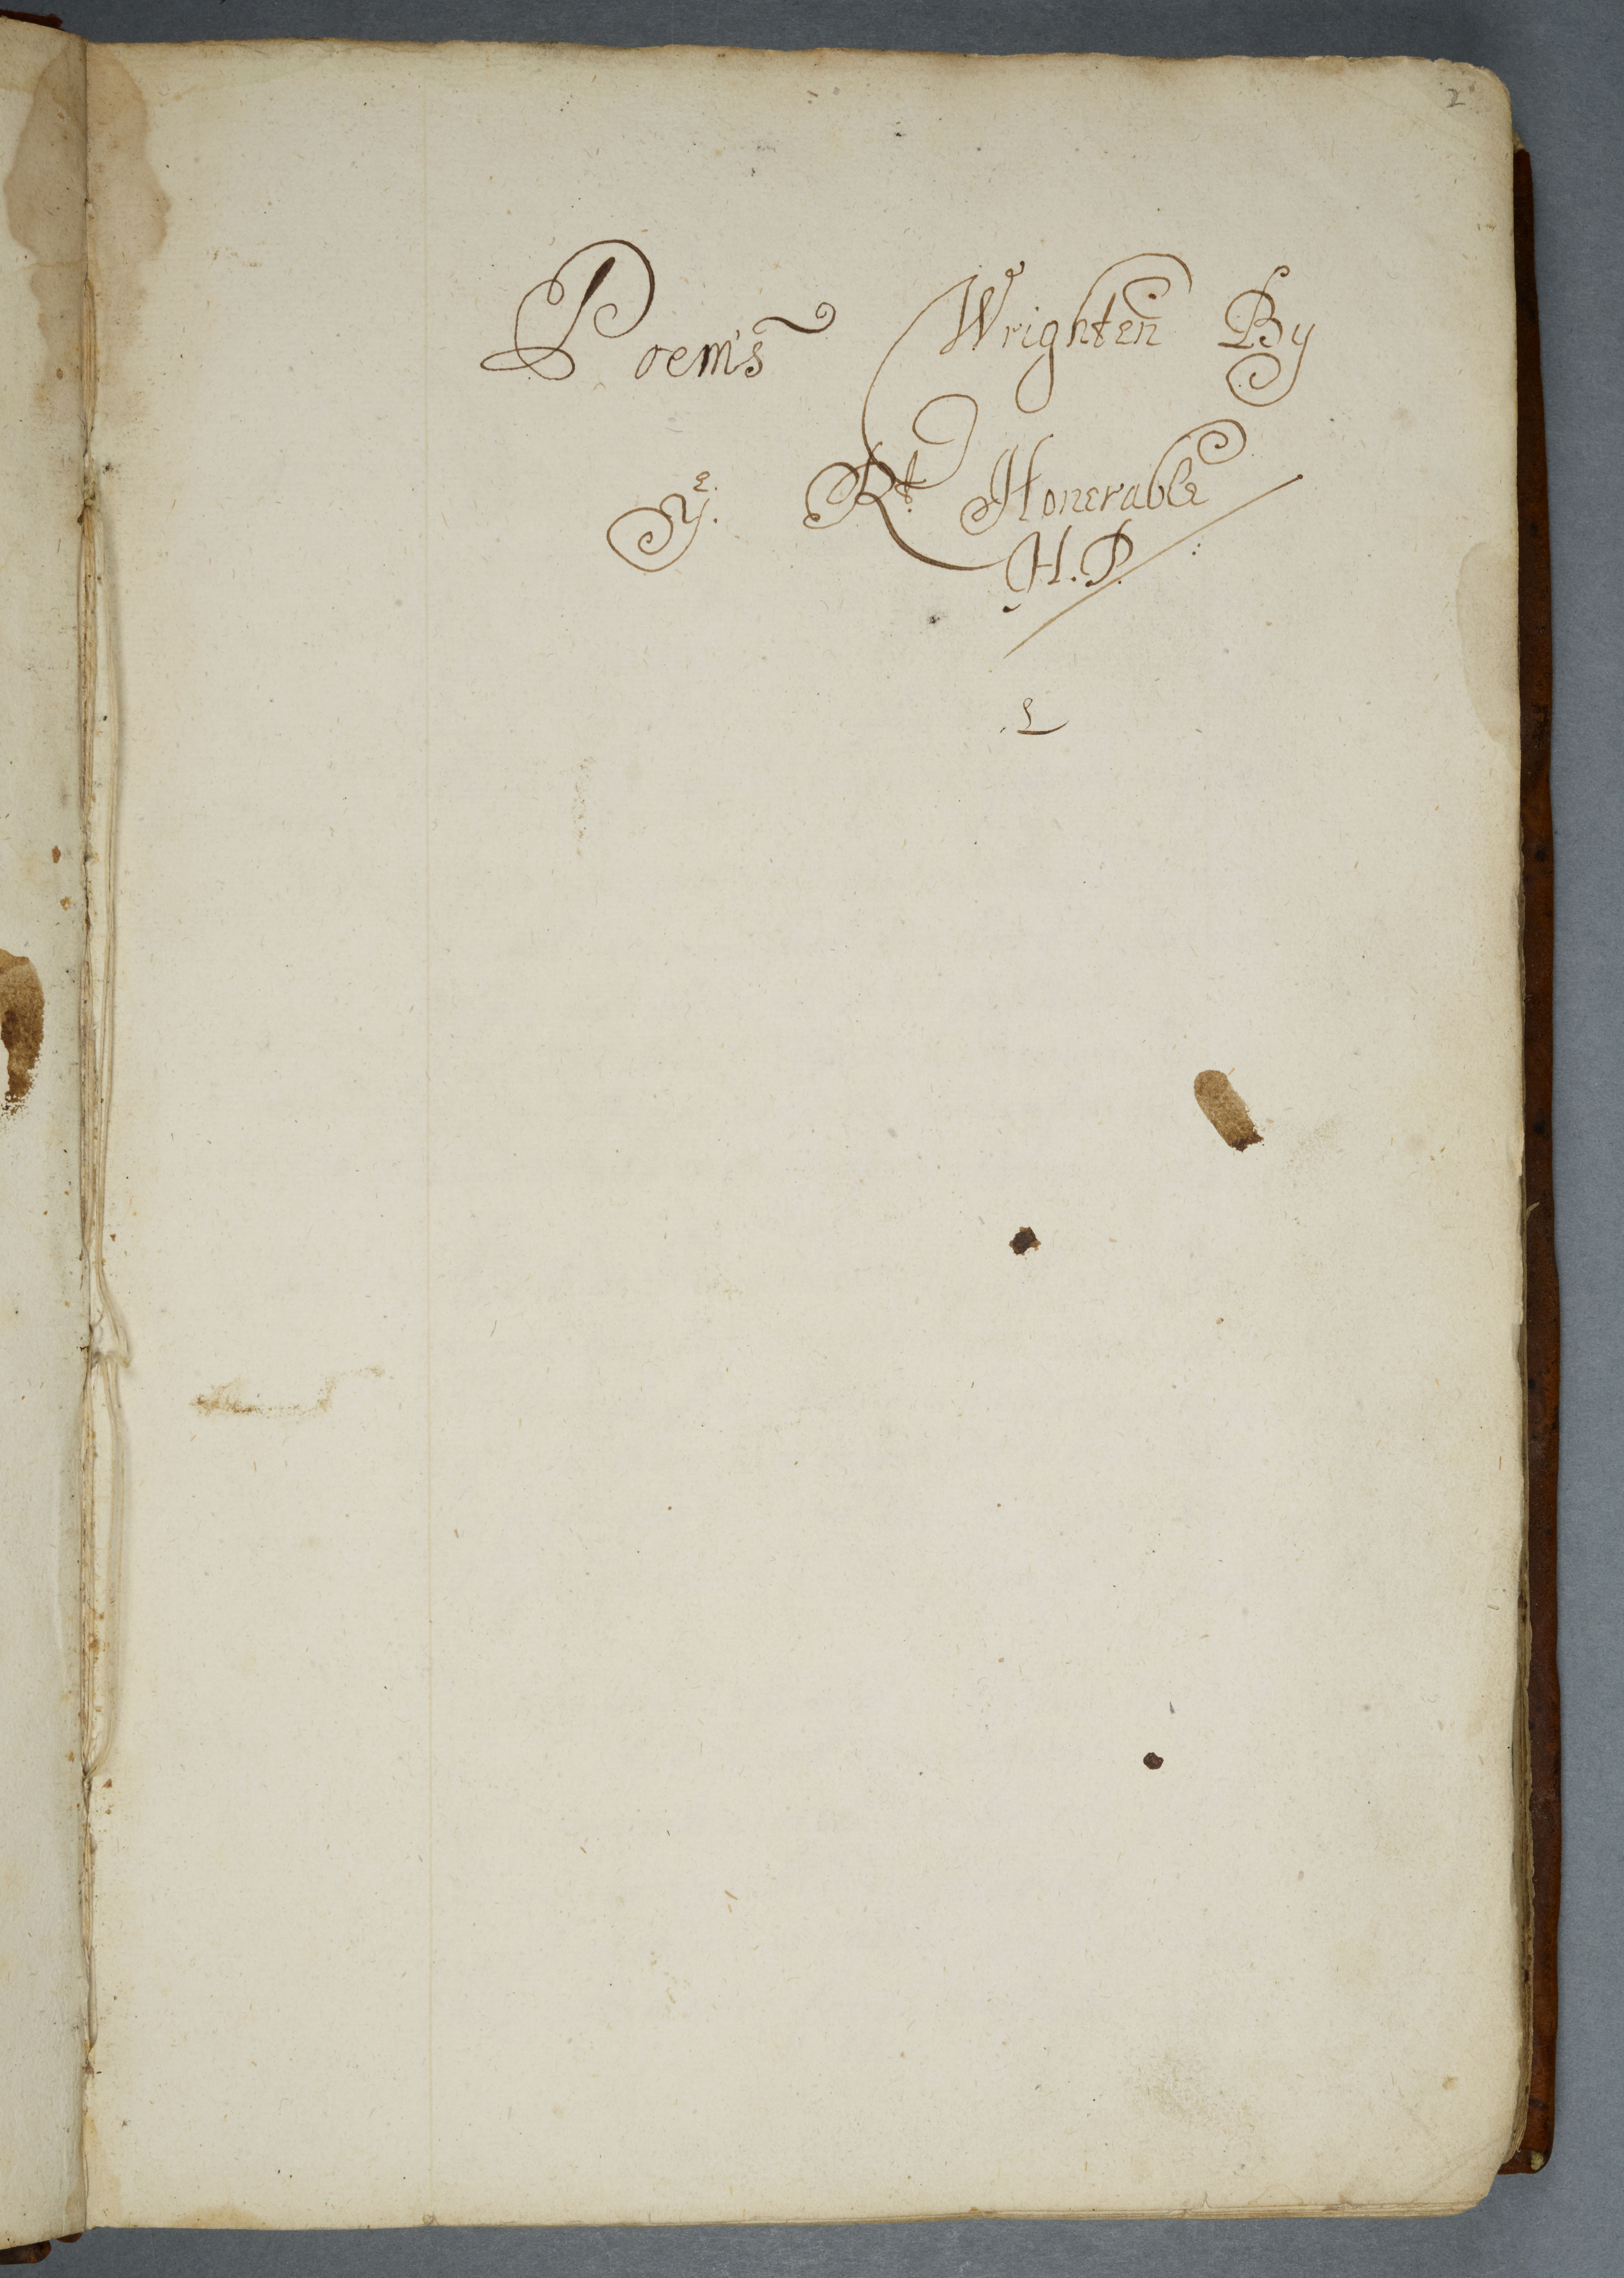 2
Poem's Wrighten By
Yᵉ. Rᵗ. Honerable
H.P.